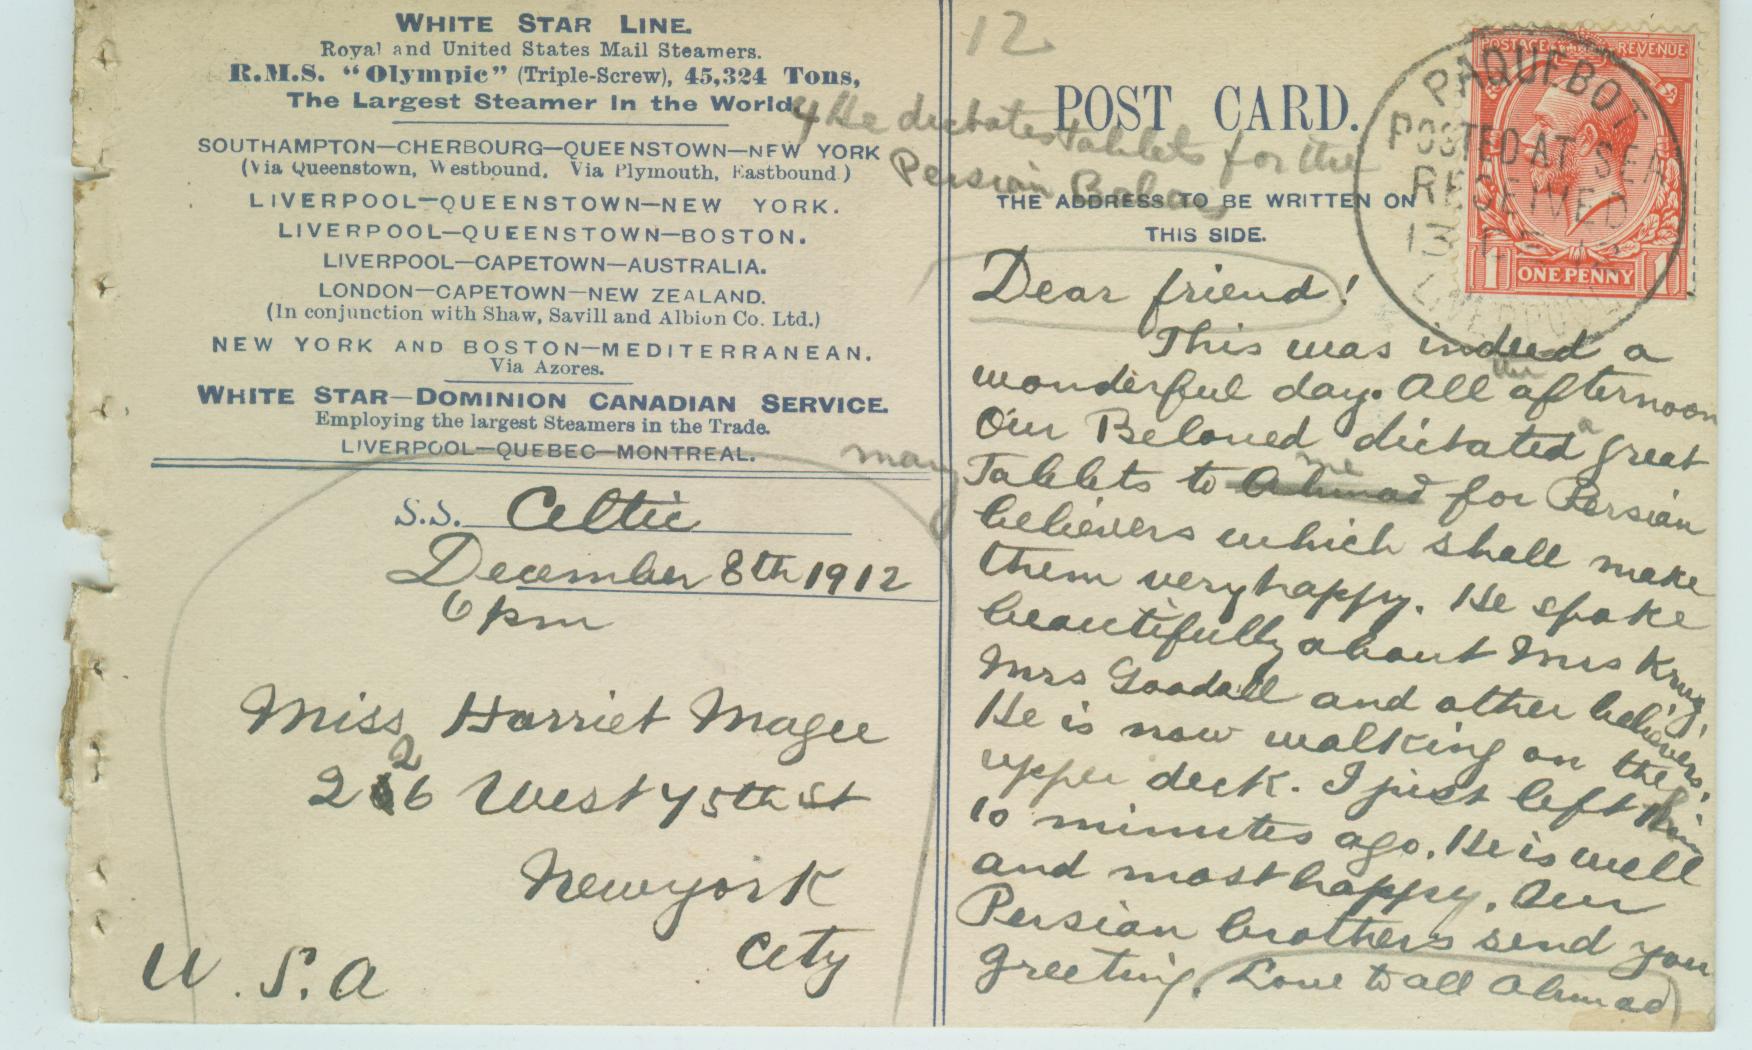 WHITE STAR LINE.
Royal and United States Mail Steamers.
R.M.S. "Olympic" (Triple-Screw), 45,324 Tons,
The Largest Steamer in the World.
SOUTHAMPTON—CHERBOURG—QUEENSTOWN—NEW YORK
(Via Queenstown, Westbound, Via Plymouth, Eastbound)
LIVERPOOL—QUEENSTOWN—NEW YORK.
LIVERPOOL—QUEENSTOWN—BOSTON.
LIVERPOOL—CAPETOWN—AUSTRALIA.
LONDON—CAPETOWN—NEW ZEALAND.
(In conjunction with Shaw, Savill and Albion Co. Ltd.)
NEW YORK AND BOSTON—MEDITERRANEAN.
Via Azores.
WHITE STAR—DOMINION CANADIAN SERVICE.
Employing the largest Steamers in the Trade.
LIVERPOOL—QUEBEC—MONTREAL.
S.S. Celtic
December 8th 1912
6 pm
Miss Harriet Magee
2
266 West 75th St
Newyork
City
U.S.A
12
POST CARD.
4 He dictates Tablets for the
Persian Bahais
THE ADDRESS TO BE WRITTEN ON
THIS SIDE.
POSTAGE REVENUE
1 ONE PENNY 1
PAQUEBOT
POSTED AT SEA
RECEIVED
13 DE 12
LIVERPOOL
Dear friend!
This was indeed a
the
wonderful day. All afternoon
a
Our Beloved dictated great
many me
Tablets to Ahmad for Persian
believers which shall make
them very happy. He spoke
beautifully about Mrs Krug,
Mrs Goodall and other believers.
He is now walking on the
upper deck. I just left him
10 minutes ago. He is well
and most happy. Our
Persian brothers send you
greeting. Love to all Ahmad